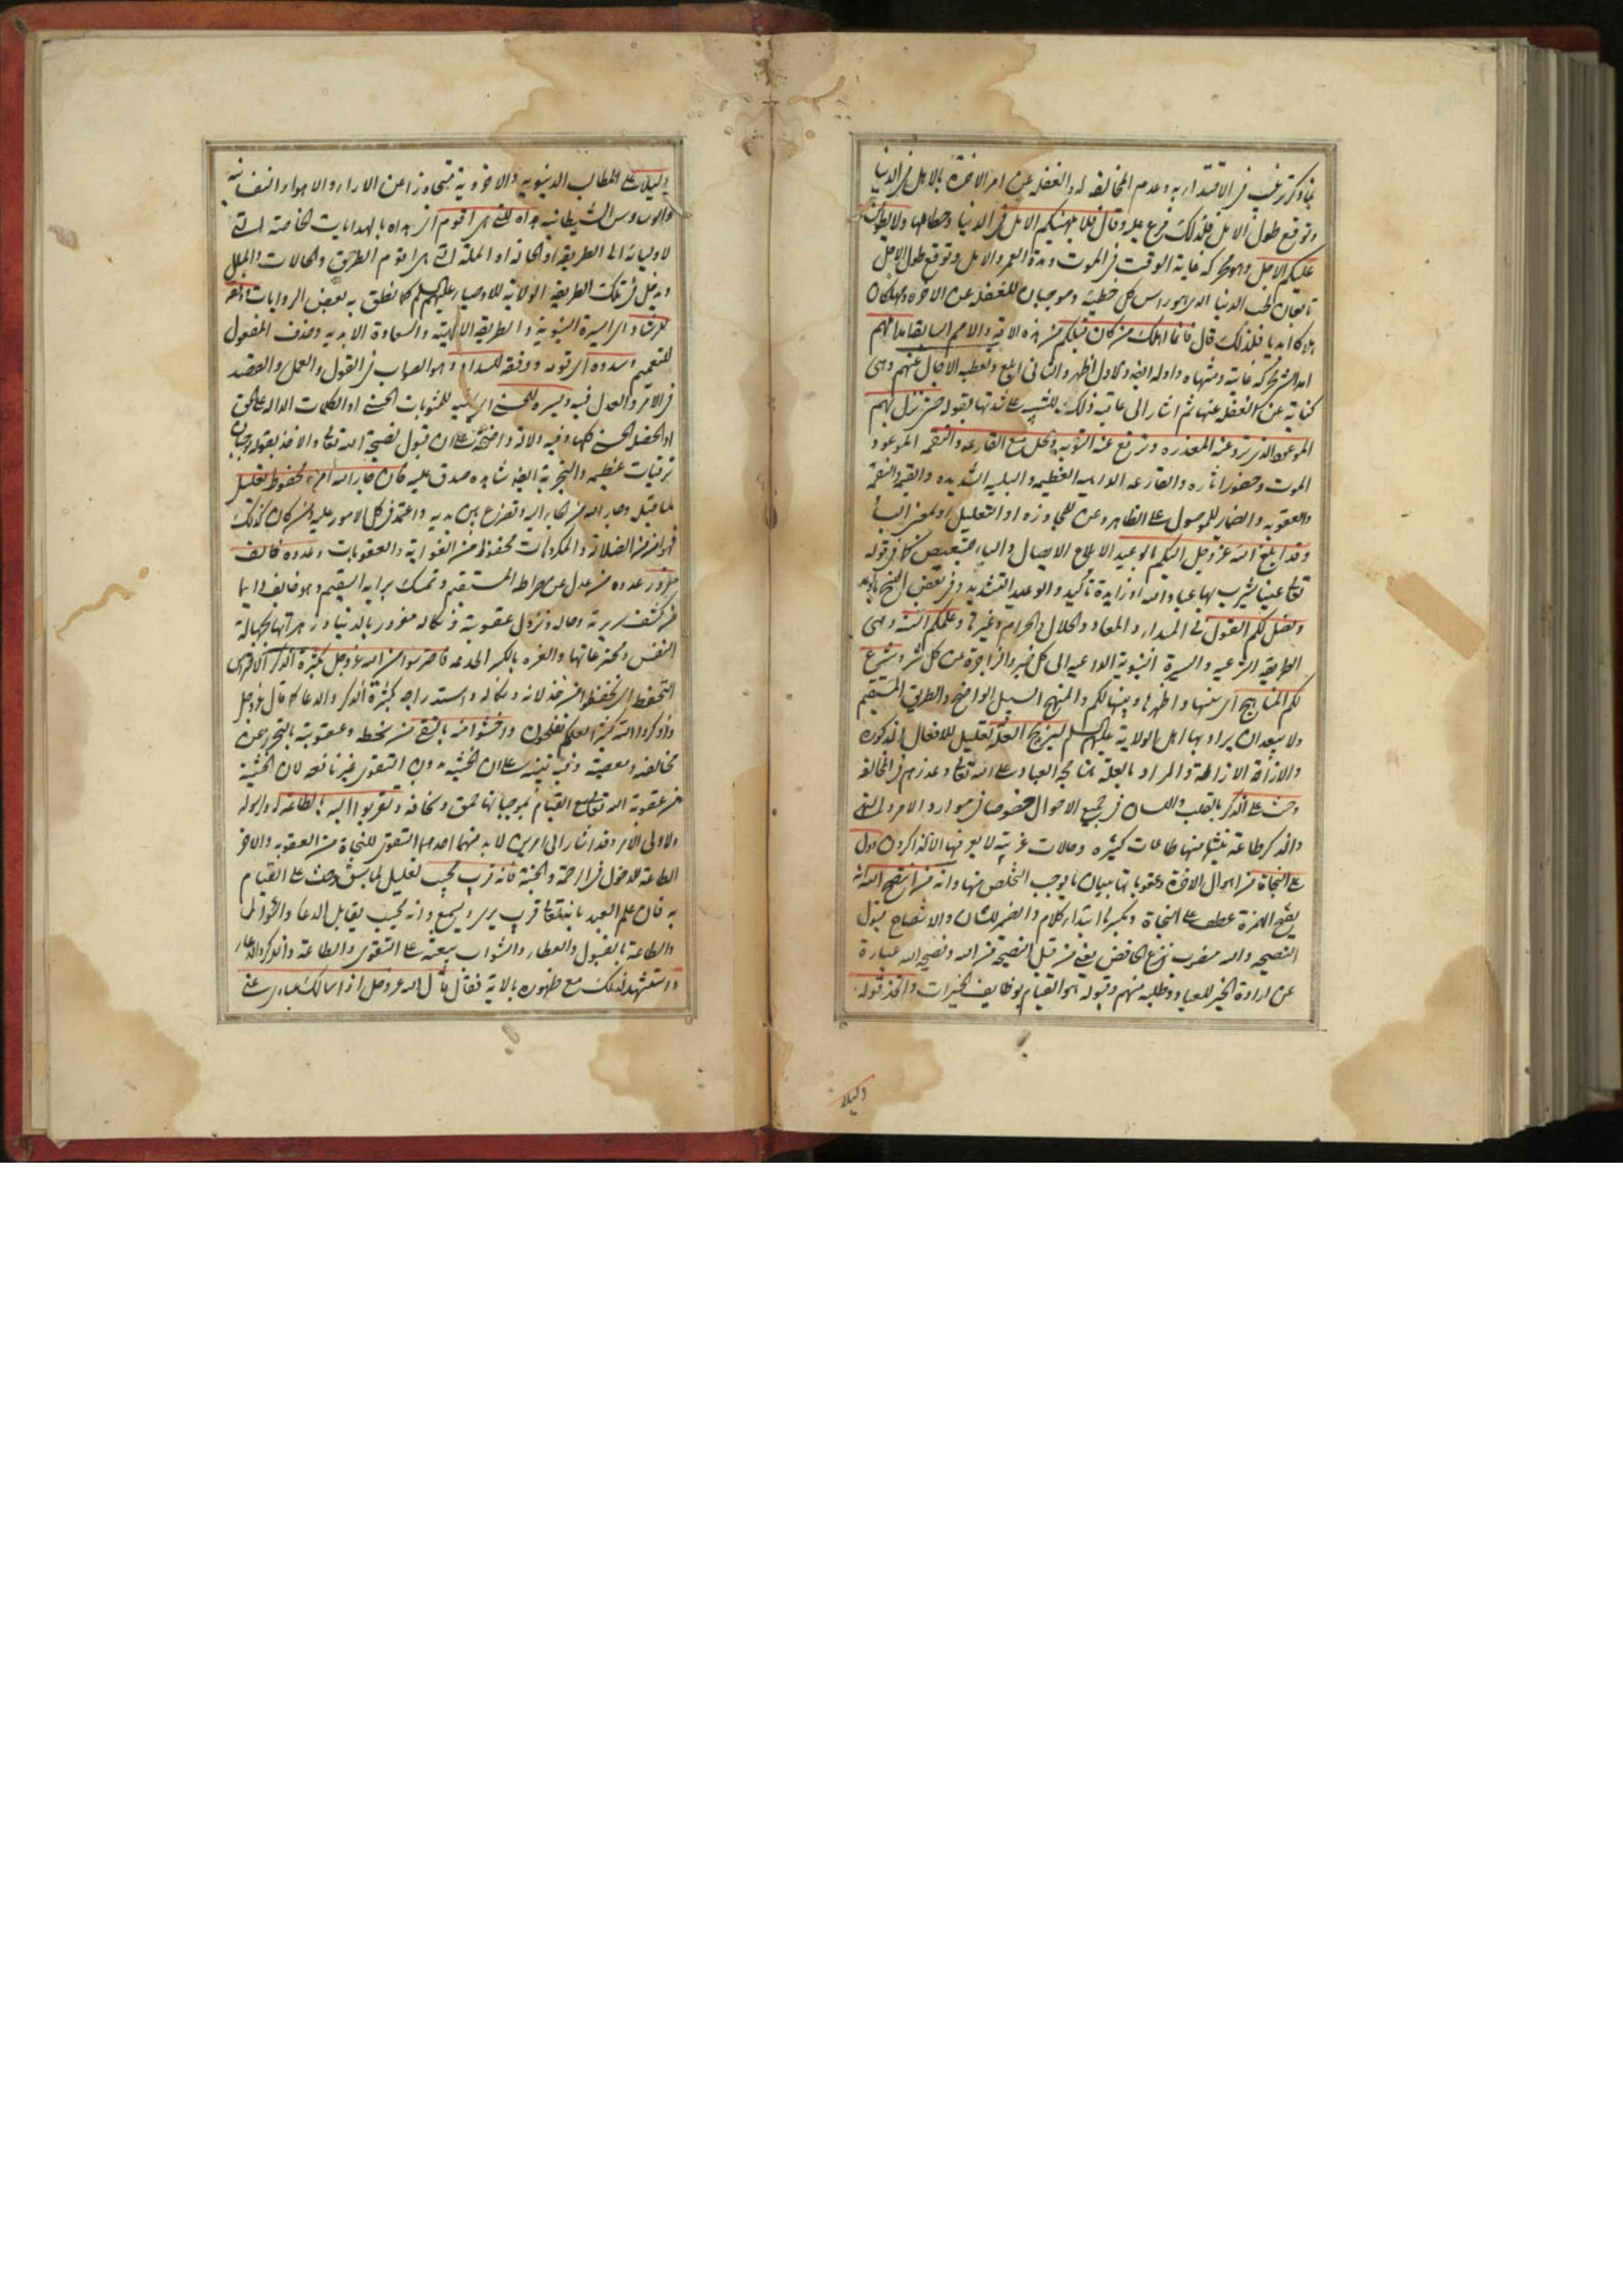 بما ذكر ترغيب في الاقتداء به وعدم المخالفة له والغفلة عن امر الاخرة بالامل في الدنيا
وتوقع طول الامل فلذلك فرع عليه وقال فلا يلهينكم الامل في الدنيا وحطامها ولا يطولن
عليكم الاجل وهو محركه غاية الوقت في الموت ومدة العمر والامل وتوقع طول الاجل
تابعان لحب الدنيا الذي هو راس كل خطيئة وموجبان للغفلة عن الاخرة ومهلكان
هلاكا ابديا فلذلك قال فانما اهلك من كان قبلكم من هذه الامة والامم السابقة امد املهم
امد الشئ محركه غايته ومنتهاه واوله ايضا والاول اظهر والثاني ابلغ وتغطية الاجال عنهم وهي
كناية عن الغفلة عنها ثم اشار الى غاية ذلك للتنبيه على شدتها بقوله حتى نزل بهم
الموعود الذي ترد عنه المعذرة وترفع عنه التوبة وتحل معه القارعة والنقمة الموعود
الموت وحضور اثاره والقارعة الداهية العظيمة والبلية الشديدة والقهر والنقمة
والعقوبة والضمائر للموصول على الظاهر وعن للمجاوزة او التعليل او لمعنى الباء
وقد ابلغ الله عز وجل اليكم بالوعيد الابلاغ الايصال والباء للتبعيض كما في قوله
تعالى عينا يشرب بها عباد الله او زايدة للتأكيد والوعيد التهديد وفي بعض النسخ بالوعد
وفصل لكم القول في المبدا والمعاد والحلال والحرام وغيرها وعلمكم السنة وهي
الطريقة الشرعية والسيرة النبوية الداعية الى كل خير والزاجرة عن كل شر وشرع
لكم المناهج اي سنها واظهرها وبينها لكم والمنهج السبيل الواضح والطريق المستقيم
ولا يبعد ان يراد بها اهل الولاية عليهم السلم ليزيح العلة تعليل للافعال المذكورة
والازاحة الازالة والمراد بالعلة ما يحج العباد على الله تعالى وعذرهم في المخالفة
وحث على الذكر بالقلب واللسان في جميع الاحوال خصوصا في موارد الامر والنهي
والذكر طاعة ينشأ منها طاعات كثيرة وحالات غريبة لا يعرفها الا الذاكرون ودل
على النجاة من اهوال الاخرة وعقوباتها ببيان ما يوجب التخلص منها وانه من انتصح لله
بفتح الهمزة عطف على النجاة وبكسرها ابتداء كلام والضمير للشان والانتصاح قبول
النصيحة والله منصوب بنزع الخافض يعني من قبل النصيحة من الله ونصيحة الله عبارة
عن ارادة الخير للعباد وطلبه منهم وقبوله هو القيام بوظايف الخيرات واتخذ قوله
دليلا
دليلا على المطالب الدنيوية والاخروية متجاوزا عن الاراء والاهواء النفسانية
والوساوس الشيطانية هداه للتي هي اقوم اي هداه بالهدايات الخاصة التي
لاوليائه الى الطريقة او الحالة او الملة التي هي اقوم الطرق والحالات والملل
ويدخل في تلك الطريقة الولاية للاوصياء عليهم السلم كما نطق به بعض الروايات ووفقه
للرشاد اي السيرة النبوية والطريقة الالهية والسعادة الابدية وحذف المفعول
للتعميم وسدده اي قومه ووفقه للسداد وهو الصواب في القول والعمل والقصد
في الامر والعدل فيه ويسره للحسنى اي هيئه للمثوبات الحسنى او الكلمات الدالة على الحق
او الخصلة الحسنى كلها وفيه دلالة واضحة على ان قبول نصيحة الله تعالى والاخذ بقوله يوجبان
ترقيات عظيمة والتجربة ايضا شاهدة صدق عليه فان جار الله امن محفوظ تعليل
لما قبل وجار الله من التجأ اليه وتضرع بين يديه واعتمد في كل الامور عليه ومن كان كذلك
فهو امن من الضلالة والمكروهات محفوظ من الغواية والعقوبات وعدوه خائف
مغرور عدوه من عدل عن صراطه المستقيم وتمسك برايه السقيم وهو خائف دايما
من كشف سريرته وحاله ونزول عقوبته ونكاله مغرور بالدنيا وزهراتها بجهالة
النفس ومخترعاتها والغرة بالكسر الخدعة فاحترسوا من الله عز وجل بكثرة الذكر الاحتراس
التحفظ اي تحفظوا من خذلانه ونكاله واستدراجه بكثرة الذكر والدعاء كما قال عز وجل
واذكروا الله كثيرا لعلكم تفلحون واخشوا منه بالتقى من سخطه وعقوبته بالتحرز عن
مخالفته ومعصيته وفيه تنبيه على ان الخشية بدون التقوى غير نافعه لان الخشية
من عقوبة الله تعالى مع القيام بموجباتها حمق وسخافة وتقربوا اليه بالطاعة له ولرسوله
ولاولي الامر وقد اشار الى امرين لا بد منهما احدهما التقوى للنجاة من العقوبة والاخر
الطاعة للدخول في الرحمة والجنة فانه قريب مجيب تعليل لما سبق وحث على القيام
به فان علم العبد بانه تعالى قريب يرى ويسمع وانه مجيب يقابل الدعاء والسؤال
والطاعة بالقبول والعطاء والثواب يبعثه على التقوى والطاعة والذكر والدعاء
واستشهد لذلك مع ظهوره بالاية فقال قال الله عز وجل واذا سالك عبادي عني